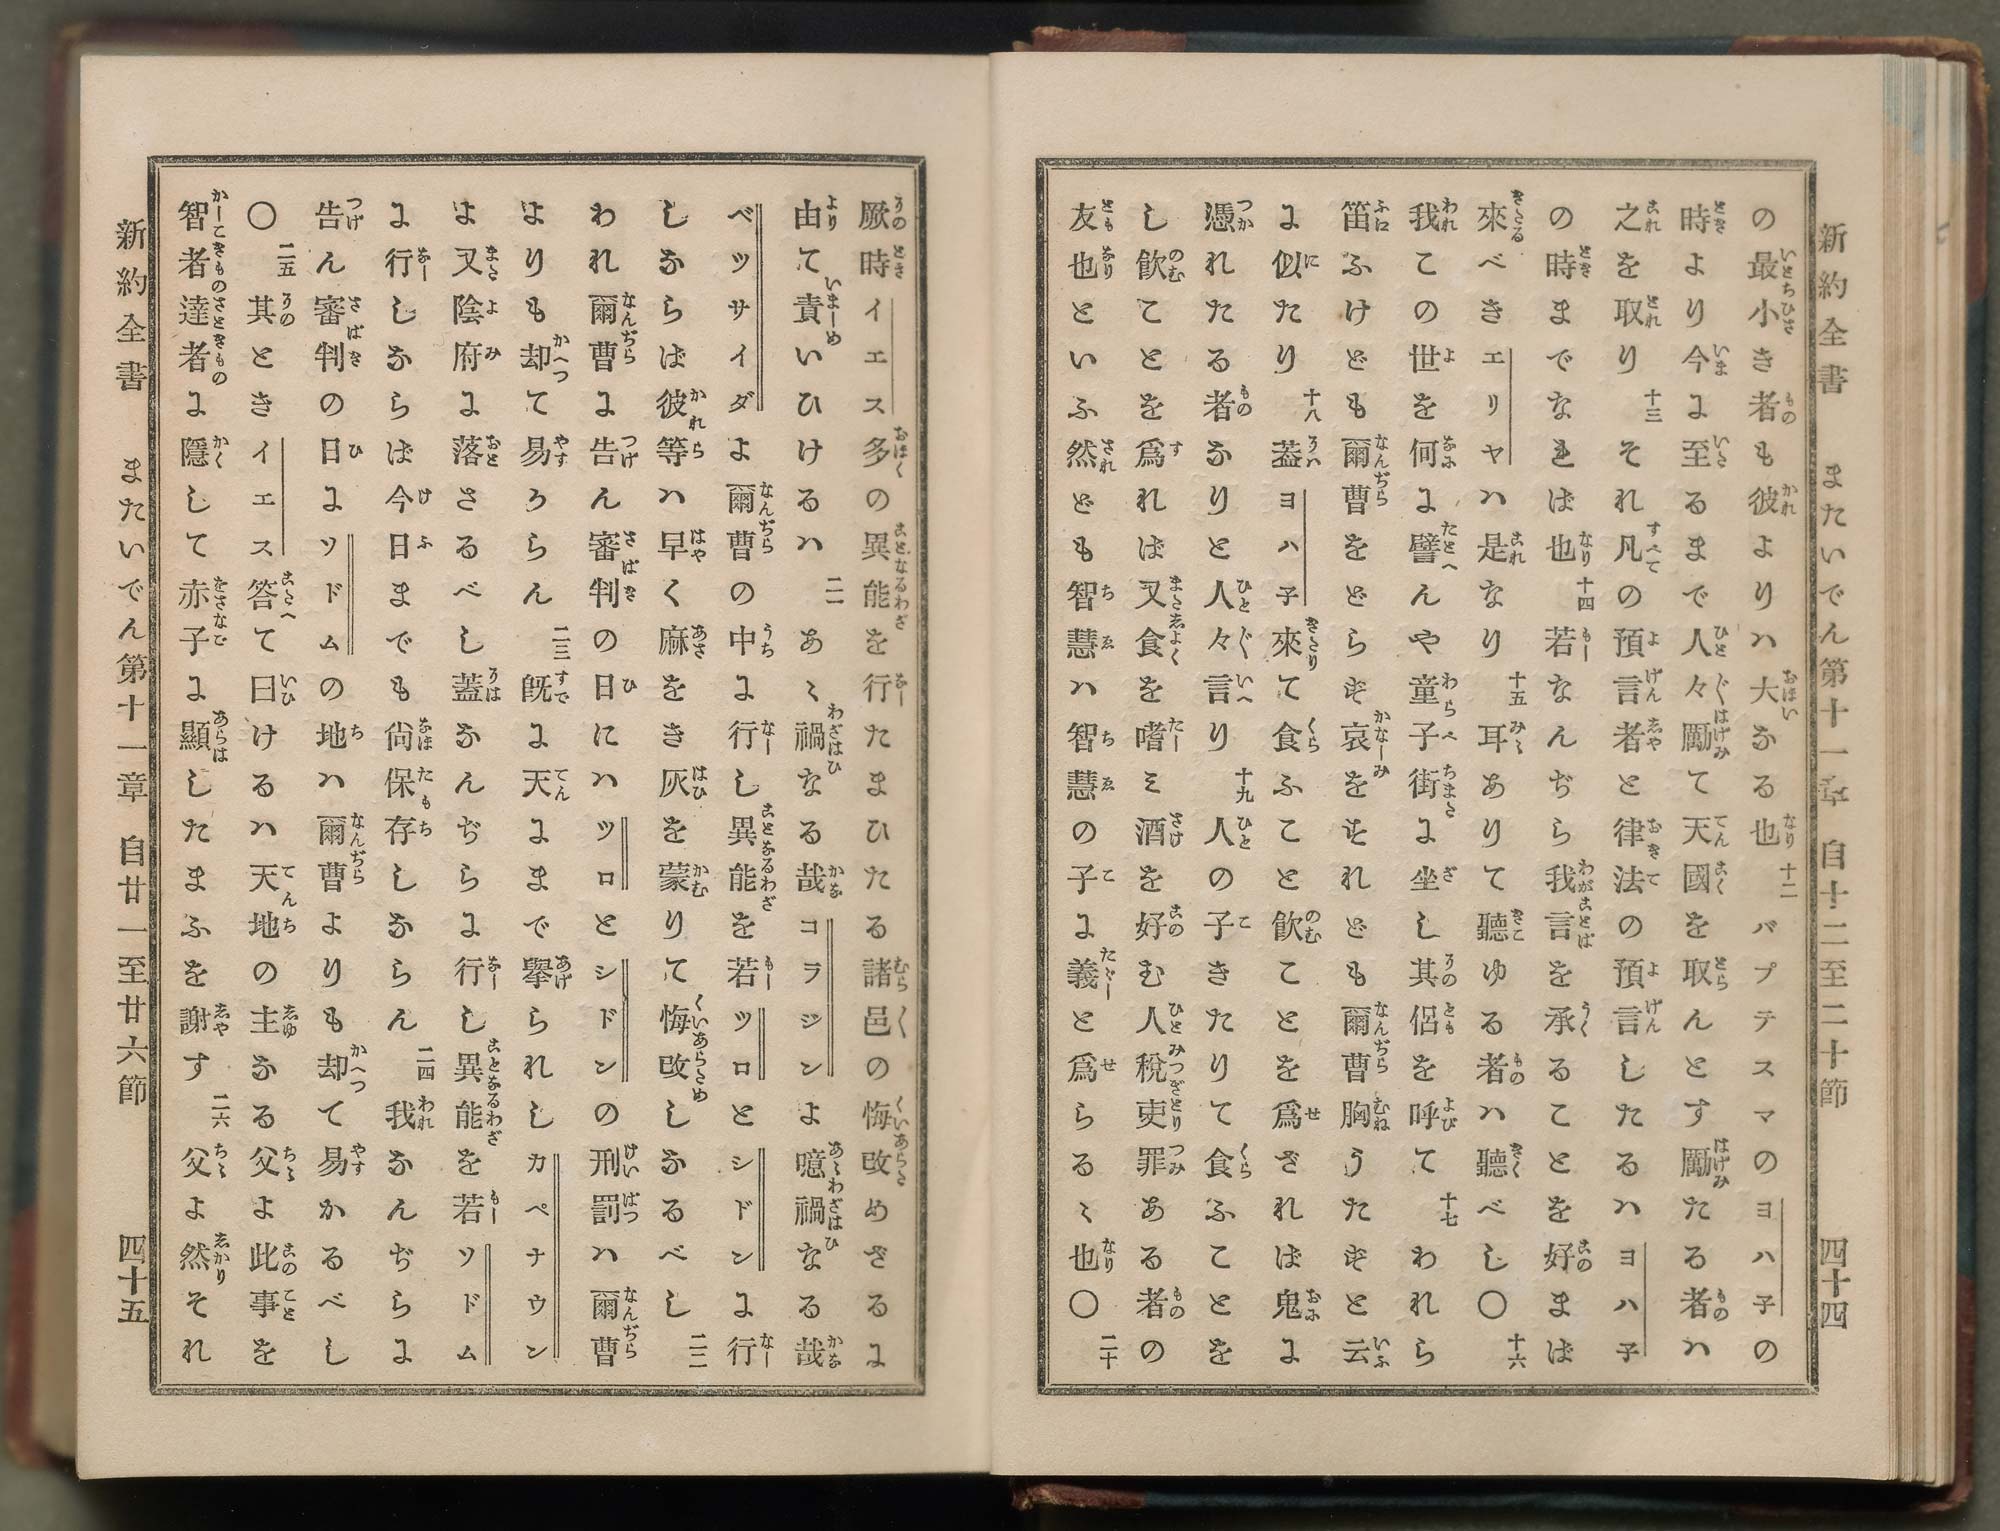 新約全書 またいでん第十一章 自十二至二十節 四十四
の最小き者も彼よりハ大なる也 十二 バプテスマのヨハ子の
時より今に至るまで人々勵て天國を取んとす勵たる者ハ
之を取り 十三 それ凡の預言者と律法の預言したるハヨハ子
の時までなれば也 十四 若なんぢら我言を承ることを好まば
來べきエリヤハ是なり 十五 耳ありて聽ゆる者ハ聽べし〇 十六
我この世を何に譬んや童子街に坐し其侶を呼て 十七 われら
笛ふけども爾曹をどらず哀をすれども爾曹胸うたずと云
に似たり 十八 蓋ヨハ子來て食ふこと飮ことを爲ざれば鬼に
憑れたる者なりと人々言り 十九 人の子きたりて食ふことを
し飮ことを爲れば又食を嗜ミ酒を好む人稅吏罪ある者の
友也といふ然ども智慧ハ智慧の子に義と爲らるゝ也〇 二十
厥時イエス多の異能を行たまひたる諸邑の悔改めざるに
由て責いひけるハ 二一 あゝ禍なる哉コラジンよ噫禍なる哉
ベツサイダよ爾曹の中に行し異能を若ツロとシドンに行
しならば彼等ハ早く麻をき灰を蒙りて悔改しなるべし 二二
われ爾曹に告ん審判の日にハツロとシドンの刑罰ハ爾曹
よりも却て易からん 二三 旣に天にまで擧られしカペナウン
よ又陰府に落さるべし蓋なんぢらに行し異能を若ソドム
に行しならば今日までも尙保存しならん 二四 我なんぢらに
告ん審判の日にソドムの地ハ爾曹よりも却て易かるべし
〇 二五 其ときイエス答て曰けるハ天地の主なる父よ此事を
智者達者に隱して赤子に顯したまふを謝す 二六 父よ然それ
新約全書 またいでん第十一章 自廿一至廿六節 四十五